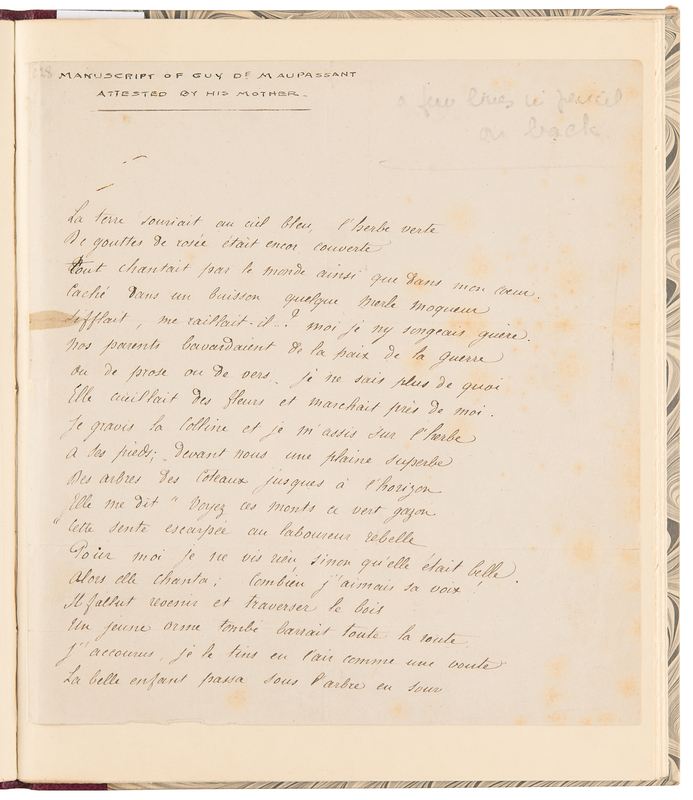 MANUSCRIPT OF GUY DE MAUPASSANT
ATTESTED BY HIS MOTHER.
a few lines in pencil
on back
La terre souriait au ciel bleu, l'herbe verte
De gouttes de rosée était encor couverte
Tout chantait par le monde ainsi que dans mon coeur.
Caché dans un buisson quelque merle moqueur
Sifflait, me raillait-il..? moi je ny songeais guère.
Nos parents bavardaient de la paix de la guerre
Ou de prose ou de vers, je ne sais plus de quoi
Elle cueillait des fleurs et marchait près de moi.
Je gravis la Colline et je m'assis sur l'herbe
A ses pieds; devant nous une plaine superbe
Des arbres des Coteaux jusques à l'horizon
Elle me dit " Voyez ces monts ce vert gazon
" Cette sente escarpée au laboureur rebelle
Pour moi je ne vis rien, sinon qu'elle était belle.
Alors elle chanta; Combien j'aimais sa voix!
Il fallut revenir et traverser le bois
Un jeune orme tombé barrait toute la route.
J'accourus, je le tins en l'air comme une voute
La belle enfant passa sous l'arbre en